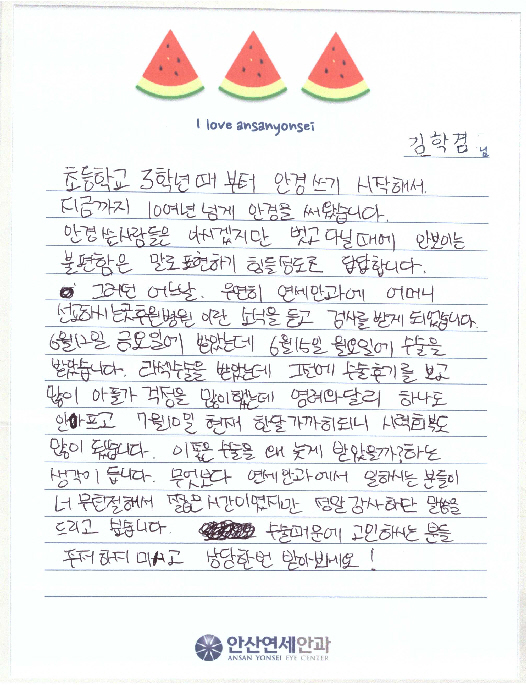 I love ansanyonsei
김학겸 님
초등학교 3학년때 부터 안경 쓰기 시작해서
지금까지 10여년 넘게 안경을 써왔습니다.
안경 쓴사람들은 아시겠지만 벗고 다닐때에 안보이는
불편함은 말로표현하기 힘들정도로 답답합니다.
그러던 어느날. 우연히 연세안과에 어머니
선교하시는곳후원병원 이란 소식을 듣고 검사를 받게 되었습니다.
6월12일 금요일에 받았는데 6월15일 월요일에 수술을
받았습니다. 라섹수술을 받았는데 그전에 수술후기를 보고
많이 아플가 걱정을 많이했는데 염려와달리 하나도
안아프고 7월10일 현재 한달가까히되니 시력회복도
많이 됐습니다. 이좋은 수술을 왜 늦게 받았을까?하는
생각이 듭니다. 무엇보다 연세안과에서 일하시는 분들이
너무친절해서 짧은시간이였지만 정말감사하단 말씀을
드리고 싶습니다. 수술때문에 고민하시는 분들
주저하지 마시고 상담한번 받아보세요!
안산연세안과
ANSAN YONSEI EYE CENTER